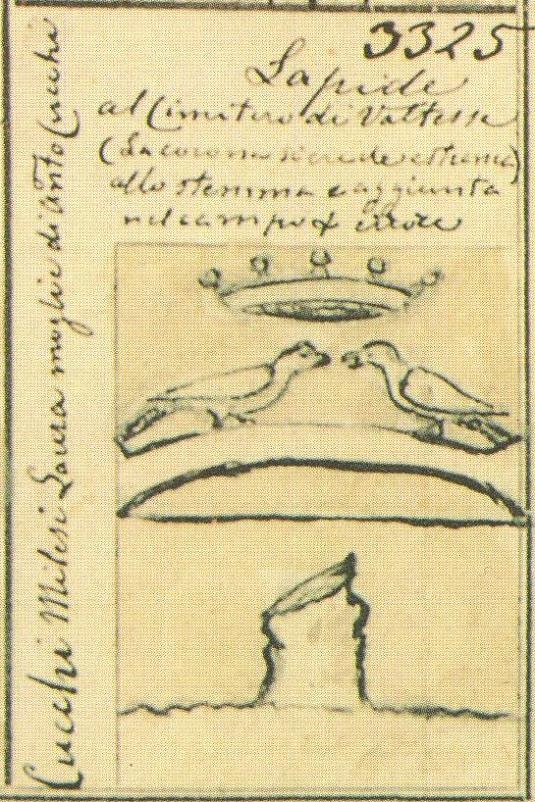 3325
Lapide
al Cimitero di Valtesse
(La corona si crede estranea)
allo stemma e aggiunta
nel campo X errore
Cucchi Milesi Laura moglie di Anto Cucchi